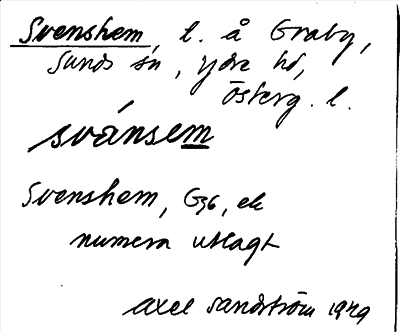 Svenshem, l. å Graby,
Sunds sn, Ydre hd,
Österg. l.
svánsem
Svenshem, G36, ek
numera utlagt
Axel Sandström 1929